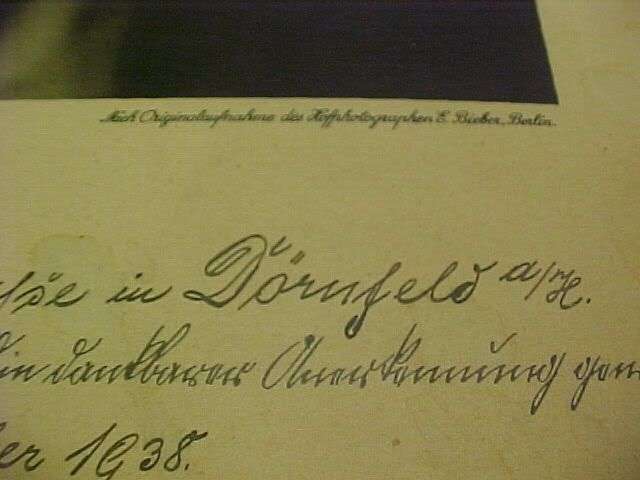 Nach Originalaufnahme des Hofphotographen E. Bieber, Berlin.
in Dörnfeld a/H.
in dankbarer Anerkennung
1938.